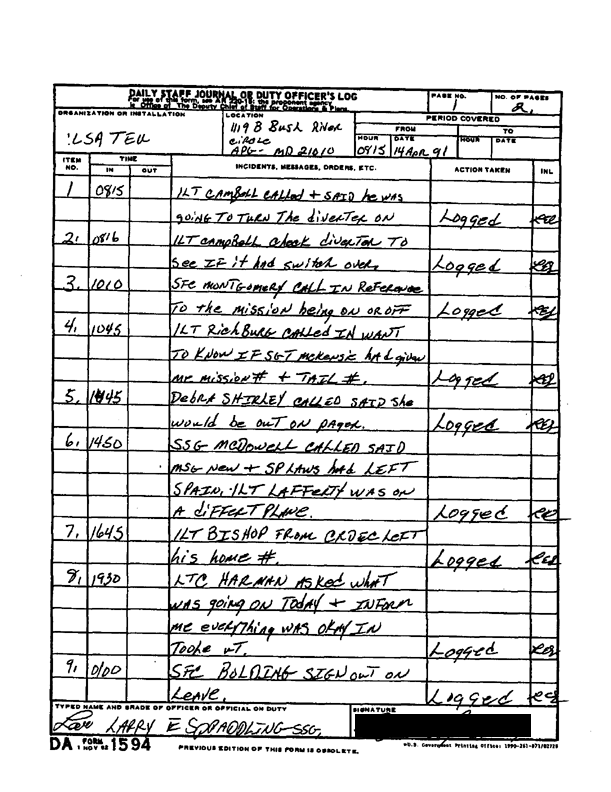 DAILY STAFF JOURNAL OR DUTY OFFICER'S LOG
For use of this form, see AR 220-15; the proponent agency
is Office of The Deputy Chief of Staff for Operations & Plans
PAGE NO.
1
NO. OF PAGES
2
ORGANIZATION OR INSTALLATION
LSA TEU
LOCATION
1119 B Bush River
Circle
APG- MD 21010
PERIOD COVERED
FROM
TO
HOUR
DATE
HOUR
DATE
0815
14 Apr 91
ITEM NO.
TIME
IN
OUT
INCIDENTS, MESSAGES, ORDERS, ETC.
ACTION TAKEN
INL
1 0815 1LT CAMPBELL CALLED + SAID he WAS
going TO TURN The diverter ON Logged
2. 0816 1LT CAMPBELL check diverTor TO
See IF it had switch over. Logged
3. 1010 SFC MONTGOMERY CALL IN Reference
To the mission being ON OR OFF Logged
4. 1045 1LT RichBurg CALLED IN WANT
TO KNOW IF SGT McKENSIE had given
me mission # + TAIL #. Logged
5. 1445 DEBRA SHIRLEY CALLED SAID She
would be out ON pager. Logged
6. 1450 SSG McDowell CALLED SAID
MSG New + SP LAWS had LEFT
SPAIN. 1LT LAFFERTY WAS ON
A differT PLANE. Logged
7. 1645 1LT BISHOP FROM CRDEC LEFT
his home #. Logged
8. 1930 LTC HARMAN ASKed what
WAS going ON TODAY + INFORM
me everything WAS OKAY IN
Logged
9. 0100 SFC BOLDING SIGN out ON
LEAVE. Logged
TYPED NAME AND GRADE OF OFFICER OR OFFICIAL ON DUTY
LARRY E SPRADDLING SSG,
SIGNATURE
DA FORM 1 NOV 62 1594
PREVIOUS EDITION OF THIS FORM IS OBSOLETE.
U.S. Government Printing Office: 1990-261-871/02728